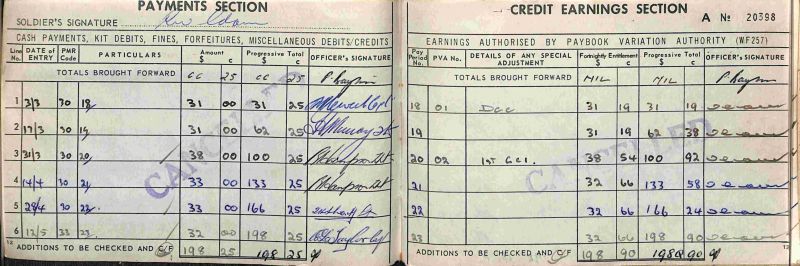 PAYMENTS SECTION
SOLDIER'S SIGNATURE
CASH PAYMENTS, KIT DEBITS, FINES, FORFEITURES, MISCELLANEOUS DEBITS/CREDITS
Line No. DATE of ENTRY PMR Code PARTICULARS Amount $ c Progressive Total $ c OFFICER'S SIGNATURE
TOTALS BROUGHT FORWARD CC 25 CC 25
1 3/3 30 18 31 00 31 25
2 17/3 30 19 31 00 62 25
3 31/3 30 20 38 00 100 25
4 14/4 30 21 33 00 133 25
5 28/4 30 22 33 00 166 25
6 12/5 33 23 32 00 198 25
12 ADDITIONS TO BE CHECKED AND C/F 198 25 198 25
CANCELLED
CREDIT EARNINGS SECTION
A No 20398
EARNINGS AUTHORISED BY PAYBOOK VARIATION AUTHORITY (WF257)
Pay Period No. PVA No. DETAILS OF ANY SPECIAL ADJUSTMENT Fortnightly Entitlement $ c Progressive Total $ c OFFICER'S SIGNATURE
TOTALS BROUGHT FORWARD NIL NIL
18 01 DCC 31 19 31 19
19 31 19 62 38
20 02 1ST GCI. 38 54 100 92
21 32 66 133 58
22 32 66 166 24
23 32 66 198 90
ADDITIONS TO BE CHECKED AND C/F 198 90 198 90 13
CANCELLED